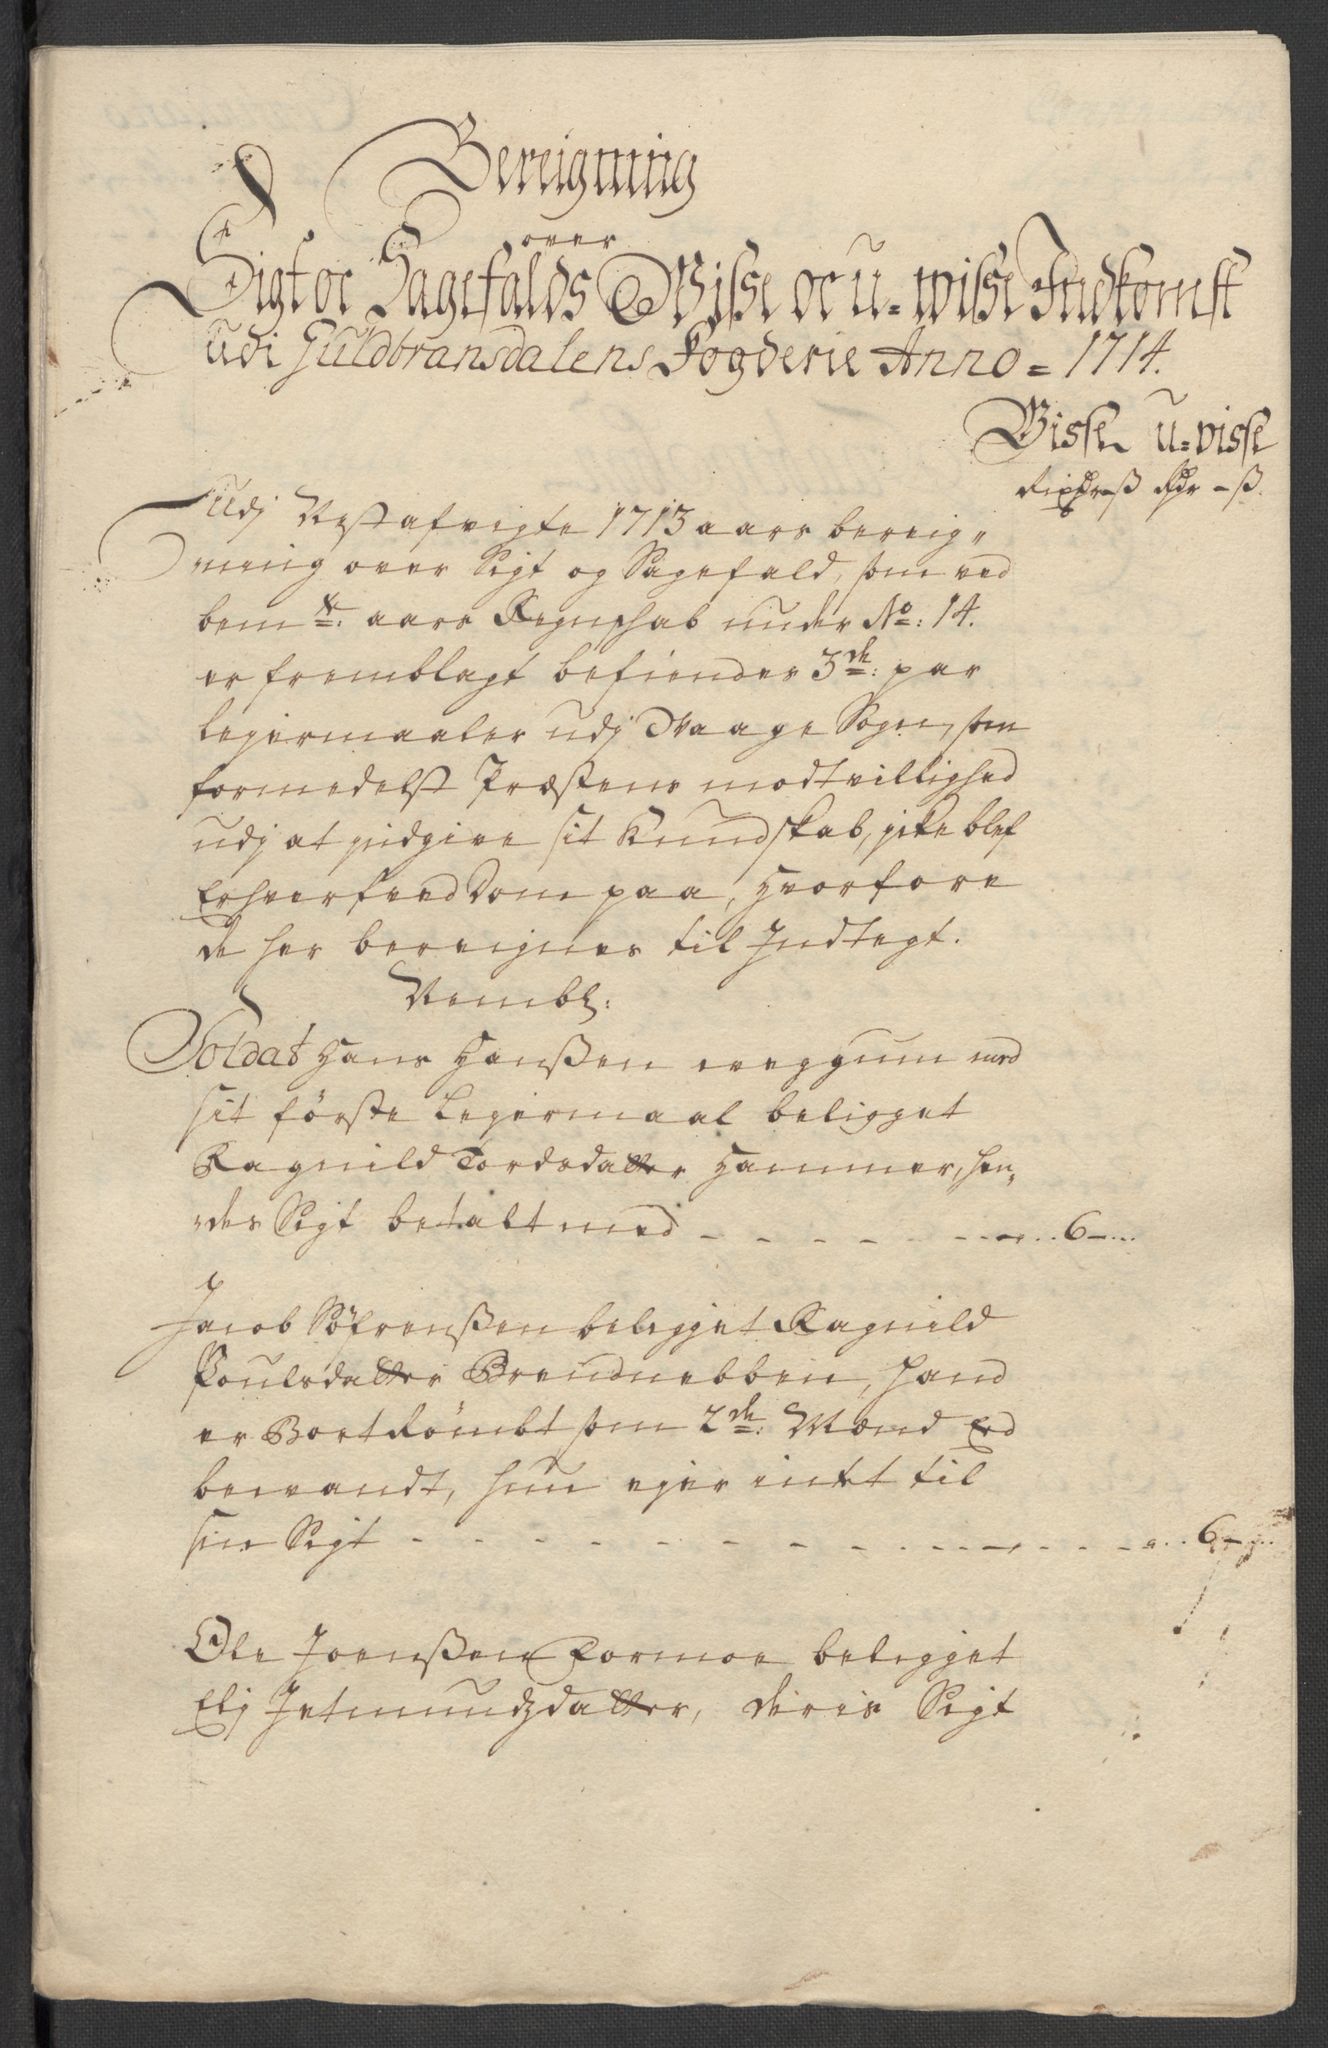 Bereigning
over
Sigt oc Sagefalds Wisse oc u-wisse Indkomst
udi Guldbransdalens Fogderie Anno = 1714.
Visse u-visse
Rixdr - ß Rdr - ß.
Udj Nestafvigte 1713 aars bereig-
ning over Sigt og Sagefald, som ved
bemte: aars Regnschab under No: 14.
er fremblagt befindes 3de: par
Leyermaaler udj Waage Sogn, som
formedelst Præstens modtvillighed
udj at udgive sit Kundskab, icke blef
Erhverfved Dom paa, hvorfore
de her bereignes til Indtegt.
Nembl:
Soldat Hans Hanßen med
sit förste Leyermaal beligget
Ragnild Tordsdatter Hammer, hen-
des Sigt betalt med - - - - - - 6 -
Jacob Söfrenßen beligget Ragnild
Poulsdatter, hand
er Bortrömbt som 2de: Mænd Er
bevandt, hun ejer intet til
sin Sigt - - - - - - - - - 6 -
Ole Joenßen Formoe beligget
Elj Jetmundzdatter, deris Sigt